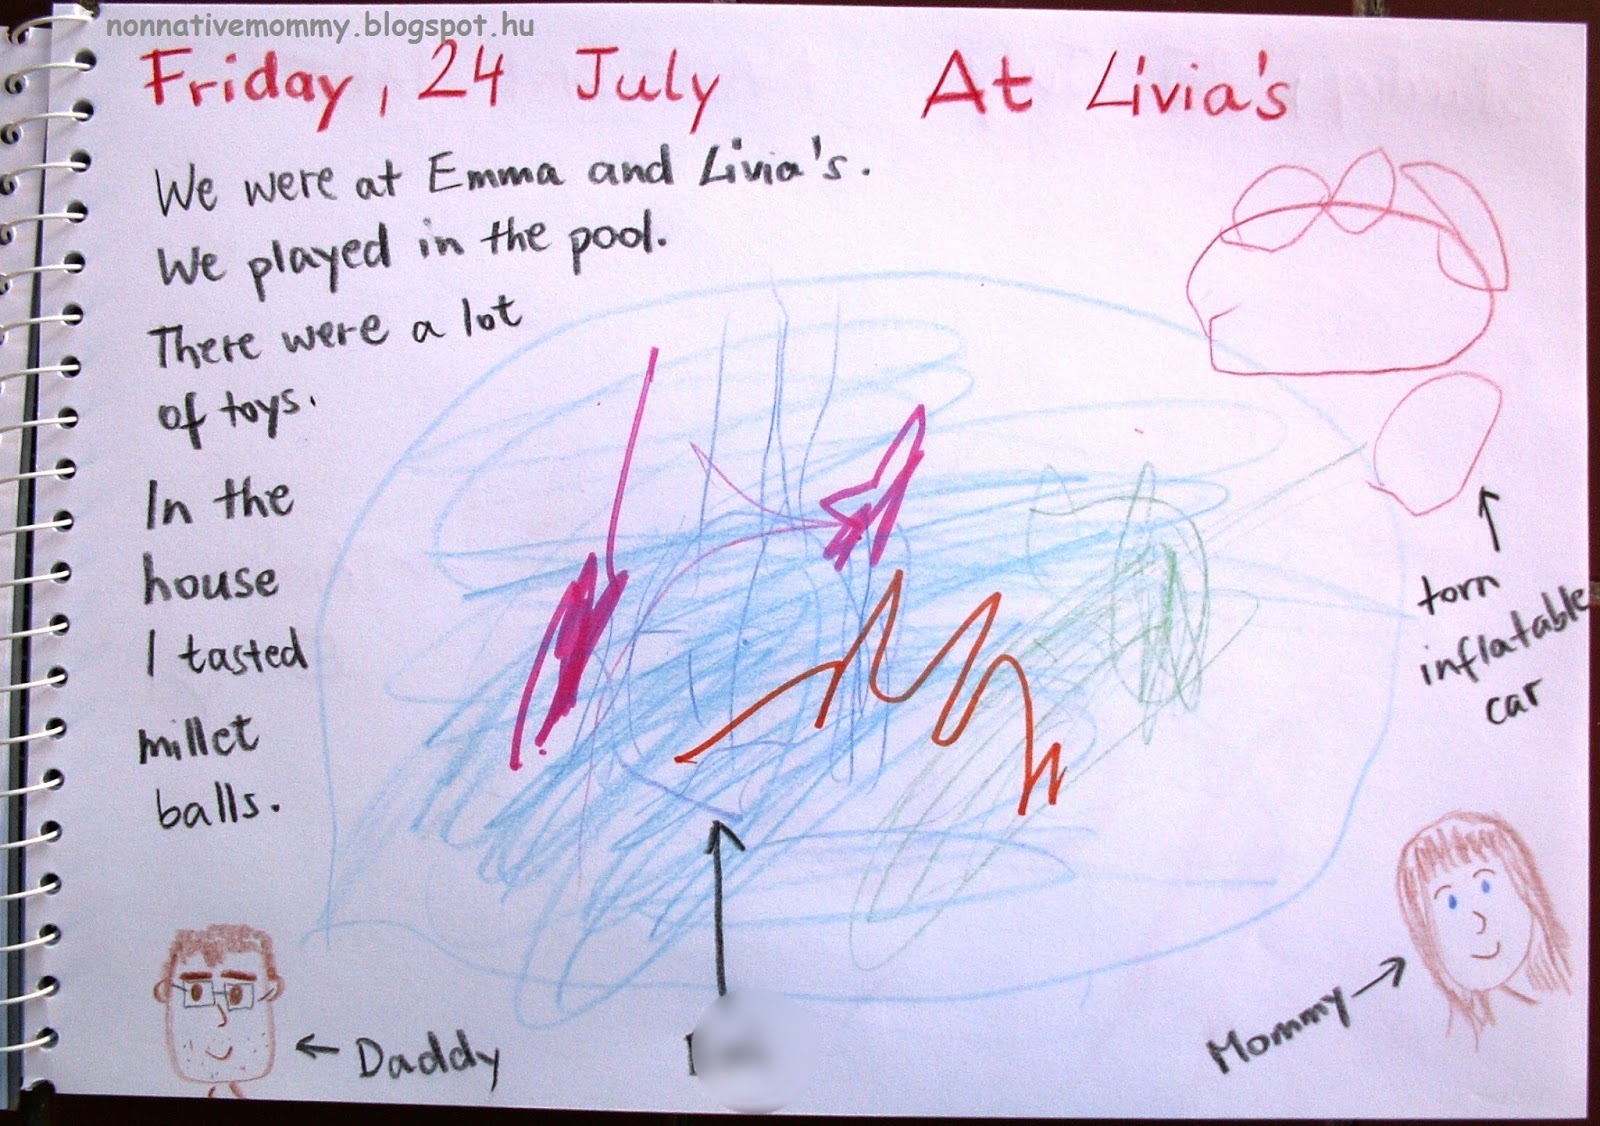 nonnativemommy.blogspot.hu
Friday, 24 July At Livia's
We were at Emma and Livia's.
We played in the pool.
There were a lot
of toys.
In the
house
I tasted
millet
balls.
torn
inflatable
car
Mommy
Daddy